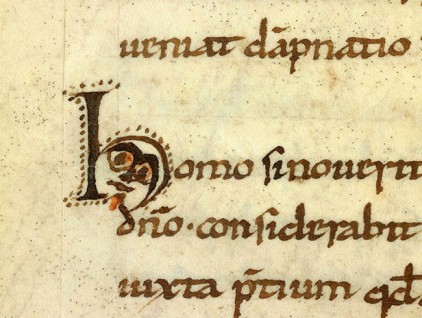 ueniat dāpnatio
Homo si nouerit
dn̄o · considerabit
iuxta p̄tium qđ